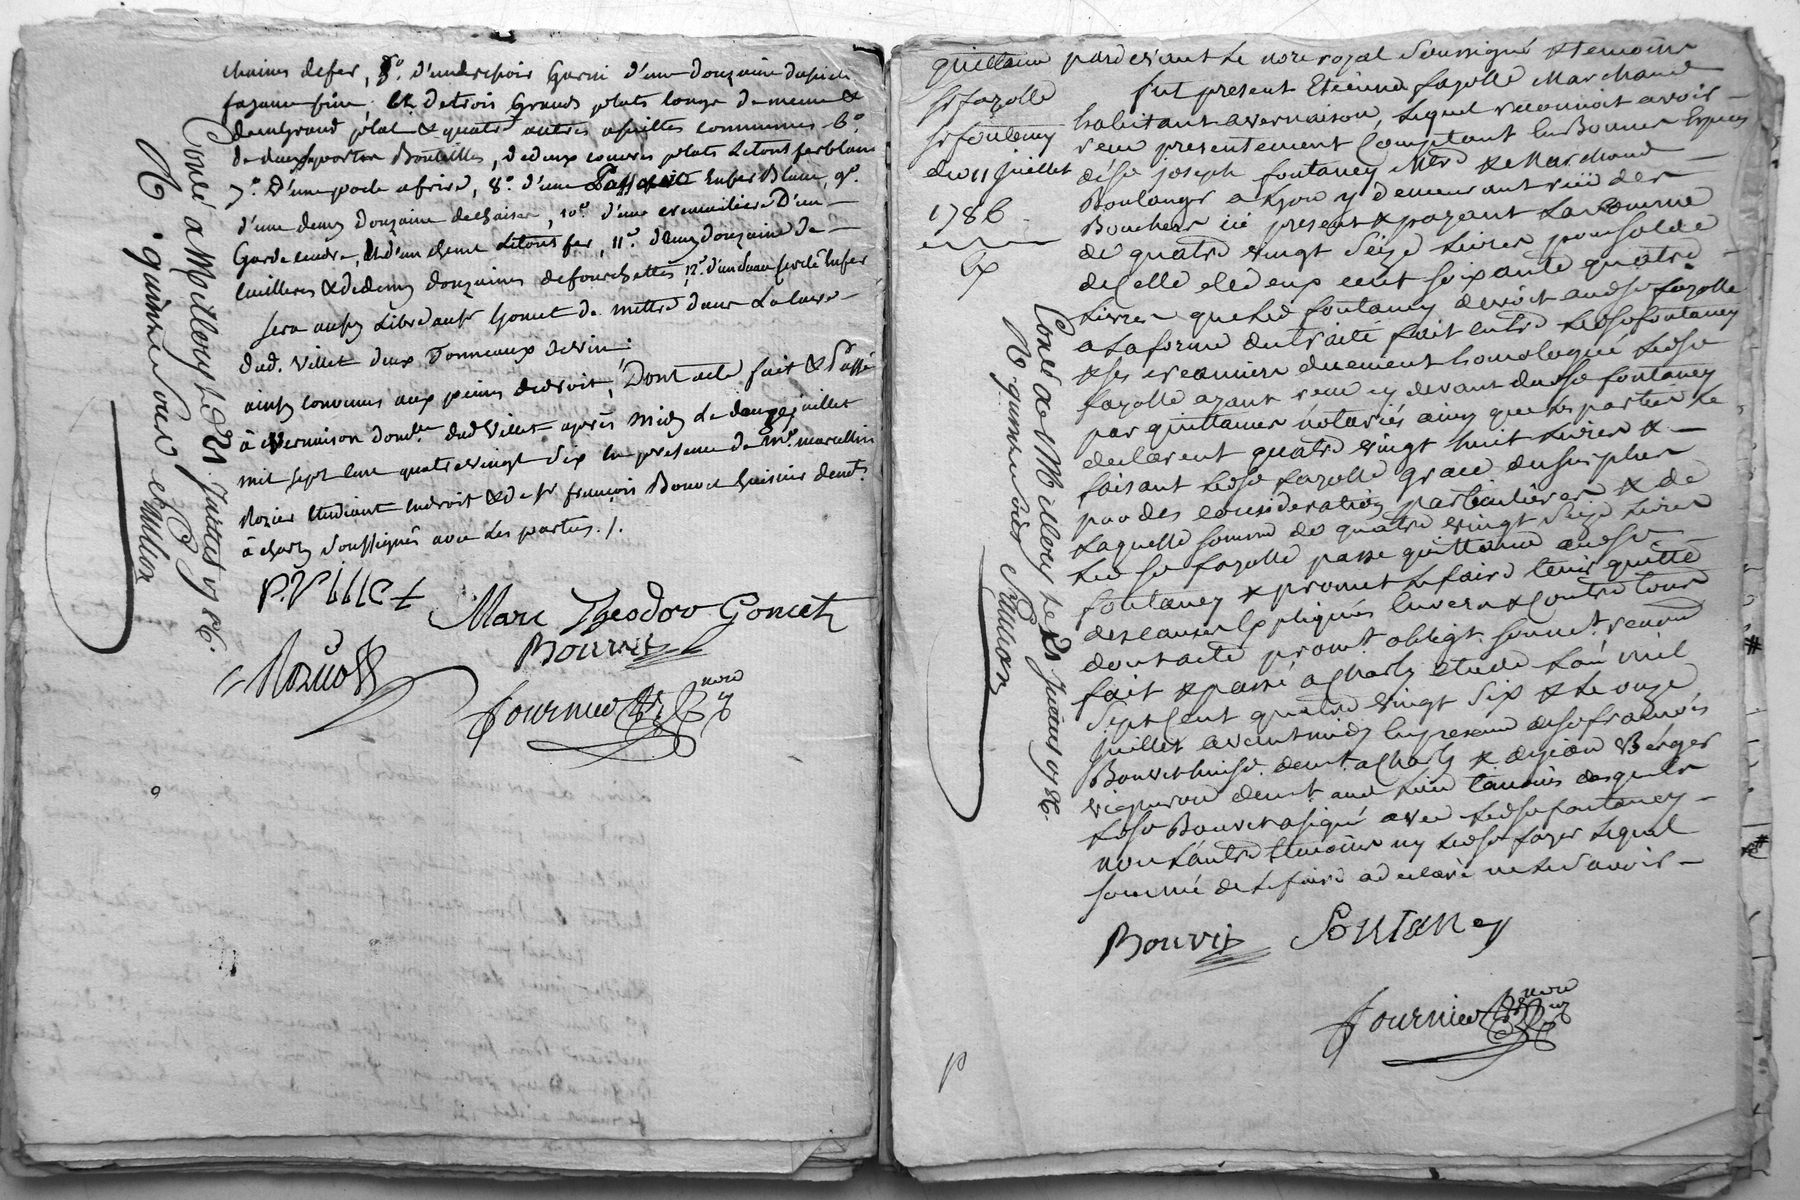 chaines de fer, 5°. d'un dressoir Garni d'une douzaine d'assiete
fayance fine et de trois Grands plats longs de meme &
d'un Grand plat & quatre autres assiettes communes 6°.
de deux portes Bouteilles, de deux couvres plats le tout fer blanc
7°. D'une poele a frire, 8°. d'une Passoire en fer Blanc, 9°.
d'une demy douzaine de chaises, 10°. d'une cremailiere D'un
Garde cendre, & d'un chenet le tout fer, 11°. demy douzaine de
cuillieres & de demy douzaine de fourchettes, 12°. d'un seau cerclé en fer
sera aussy libre audt Goncet de mettre dans la cave
dud. Villet deux Tonneaux de vin:
ainsy convenus aux peines de droit, Dont acte fait & Passé
à Vernaison domile. dud Villet après midy le douze juillet
mil sept cent quatre vingt six en presence de mr. marcellin
Rozier Etudiant en droit & de sr françois Bouvet huissier demt.
à charly soussignés avec les parties ./.
P. Villet
Marc Theodore Goncet
Bouvet
Rozier
fournier nore
Conlé a Millery le 21 Juillet 1786.
R. quinze sous
quittance
sr fayolle
sr fontaney
du 11 juillet
1786
pardevant le nore royal soussigné & temoins
fut present Etienne fayolle Marchand
habitant a vernaison, lequel reconnoit avoir
reçu presentement Comptant en Bonnes Especes
de sr joseph fontaney Mtre & Marchand
Boulanger a Lyon y demeurant rue des
Bouchers ici present & payant la somme
de quatre vingt seize livres pour solde
de celle de deux cent soixante quatre
livres que led fontaney devoit aud sr fayolle
a la forme du traité fait entre led sr fontaney
& ses creanciers duement homologué led sr
fayolle ayant reçu cy devant dud sr fontaney
par quittances notariés ainsy que les parties le
declarent quatre vingt huit livres &
faisant led sr fayolle grace du surplus
par des considerations particulières & de
laquelle somme de quatre vingt seize livres
led sr fayolle passe quittance aud sr
fontaney & promet le faire tenir quitte
des causes Expliquées Envers & Contre tous
dont acte promt. obligt. soumt. renond
fait & passé a Charly etude l'an mil
sept Cent quatre vingt six & le onze
juillet avant midy En presence de sr françois
Bouvet huissr. demt. a Charly & de jean Berger
vigneron demt. aud lieu temoins desquels
led sr Bouvet a signé avec led sr fontaney
non l'autre temoins ny led sr fayolle lequel
sommé de le faire a declaré ne le savoir
Bouvet
Fontaney
fournier nore
Conlé a Millery le 21 Juillet 1786.
R. quinze sous